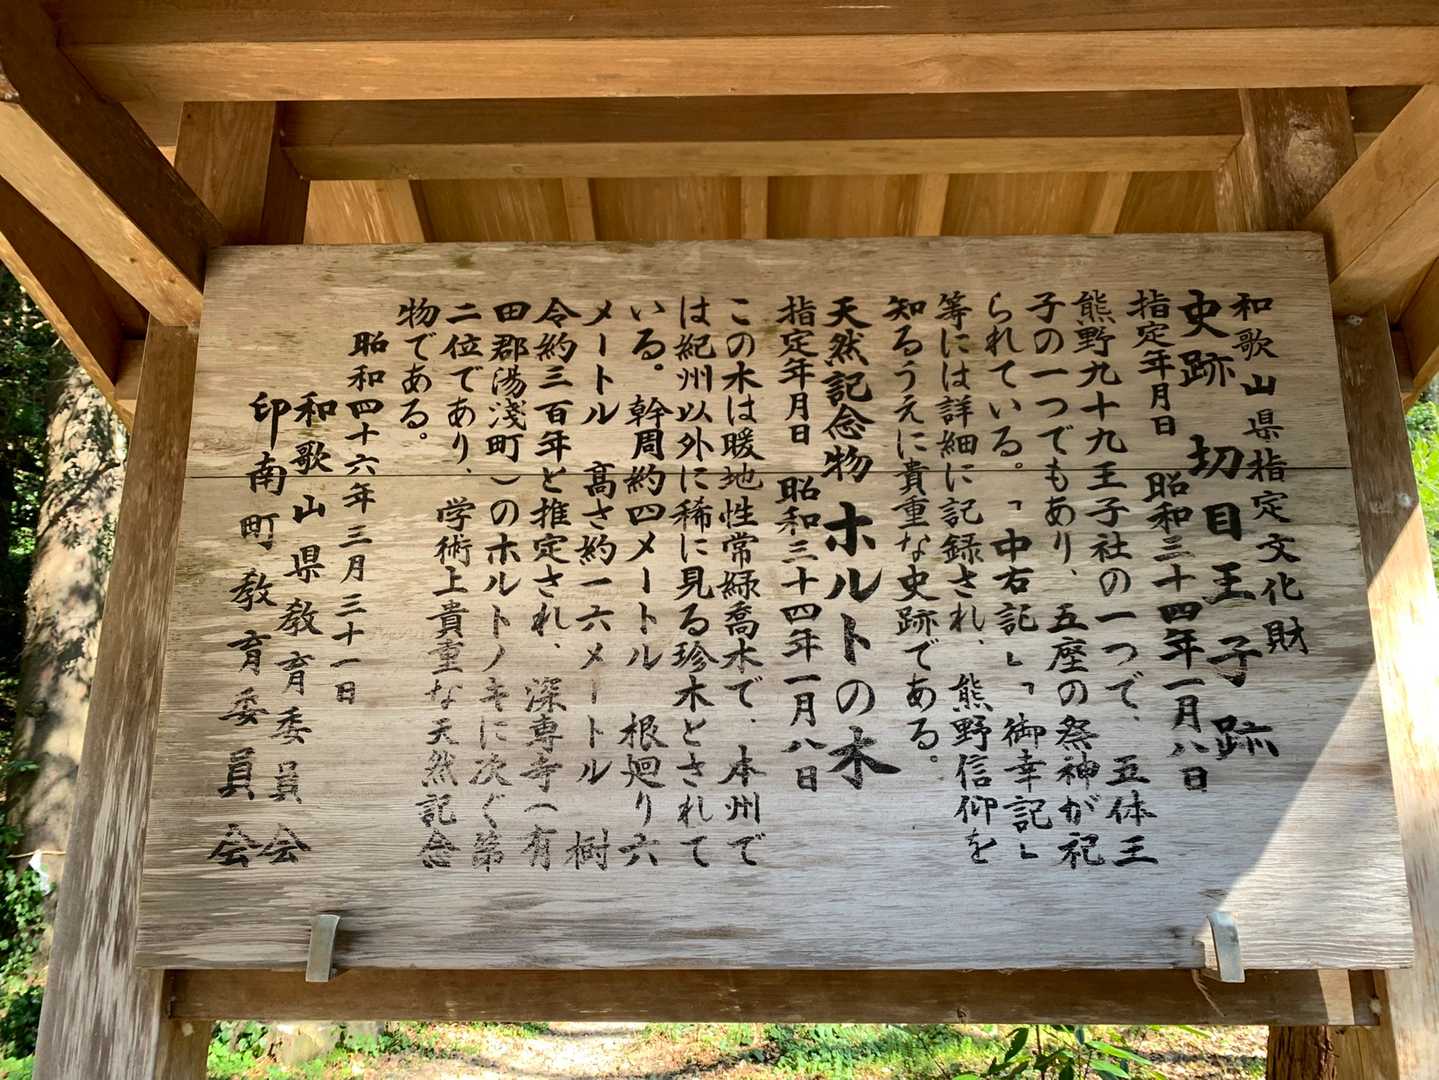 和歌山県指定文化財
史跡 切目王子跡
指定年月日 昭和三十四年一月八日
熊野九十九王子社の一つで、五体王
子の一つでもあり、五座の祭神が祀
られている。「中右記」「御幸記」
等には詳細に記録され、熊野信仰を
知るうえに貴重な史跡である。
天然記念物 ホルトの木
指定年月日 昭和三十四年一月八日
この木は暖地性常緑喬木で、本州で
は紀州以外に稀に見る珍木とされて
いる。幹周約四メートル 根廻り六
メートル 高さ約一六メートル 樹
令約三百年と推定され、深専寺(有
田郡湯浅町)のホルトノキに次ぐ第
二位であり、学術上貴重な天然記念
物である。
昭和四十六年三月三十一日
和歌山県教育委員会
印南町教育委員会